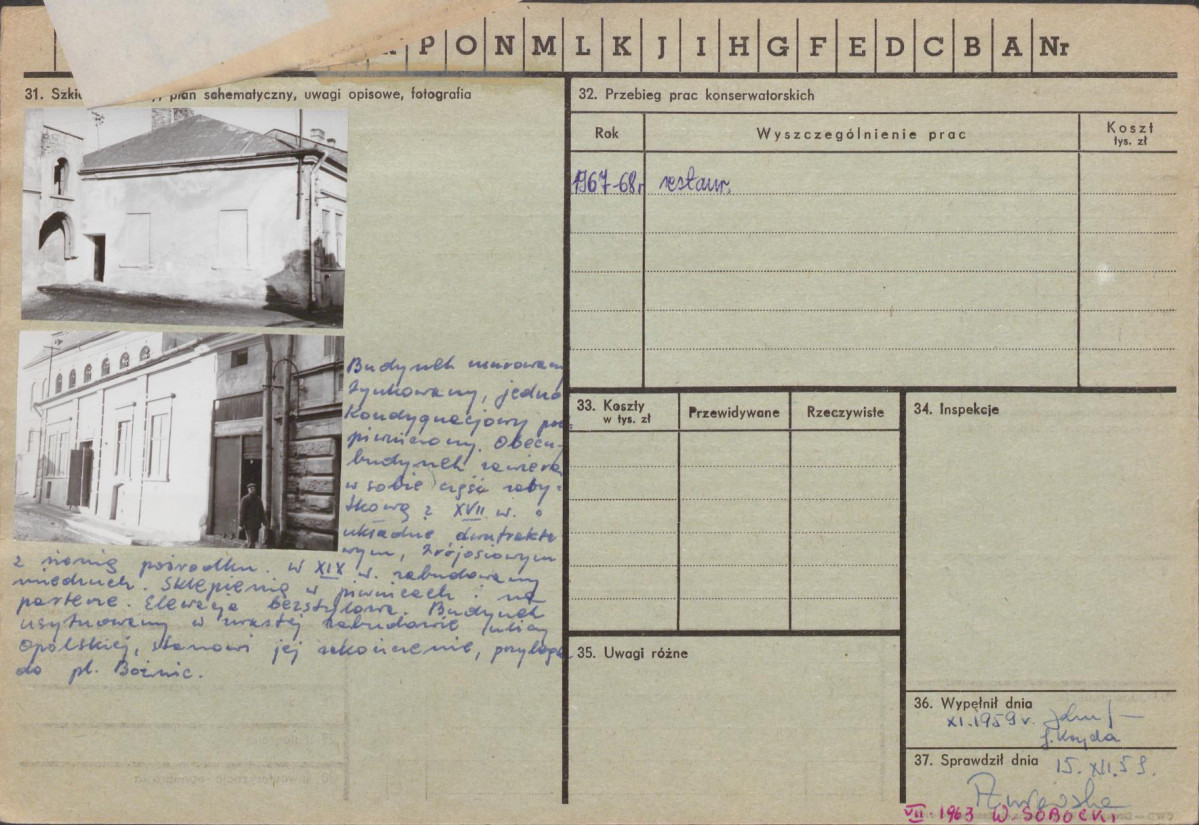 P O N M L K J I H G F E D C B A Nr
31. plan schematyczny, uwagi opisowe, fotografia
Budynek murowany
tynkowany, jedno
kondygnacjowy pod
piwniczony. Obecny
budynek zawiera
w sobie część zaby-
tkową z XVII w. o
układzie dwutrakto
wym, trójosiowym
z sienią pośrodku. W XIX w. zabudowany
miedzuch. Sklepienia w piwnicach i na
parterze. Elewacja bezstylowa. Budynek
usytuowany w zwartej zabudowie ulicy
Opolskiej, stanowi jej zakończenie, przylega
do pl. Bożnic.
32. Przebieg prac konserwatorskich
Rok
Wyszczególnienie prac
Koszt
tys. zł
1967-68r restaur.
33. Koszty
w tys. zł
Przewidywane
Rzeczywiste
34. Inspekcje
35. Uwagi różne
36. Wypełnił dnia
XI.1959r.
37. Sprawdził dnia 15.XII.59.
VII 1963 W. SOBOCKI